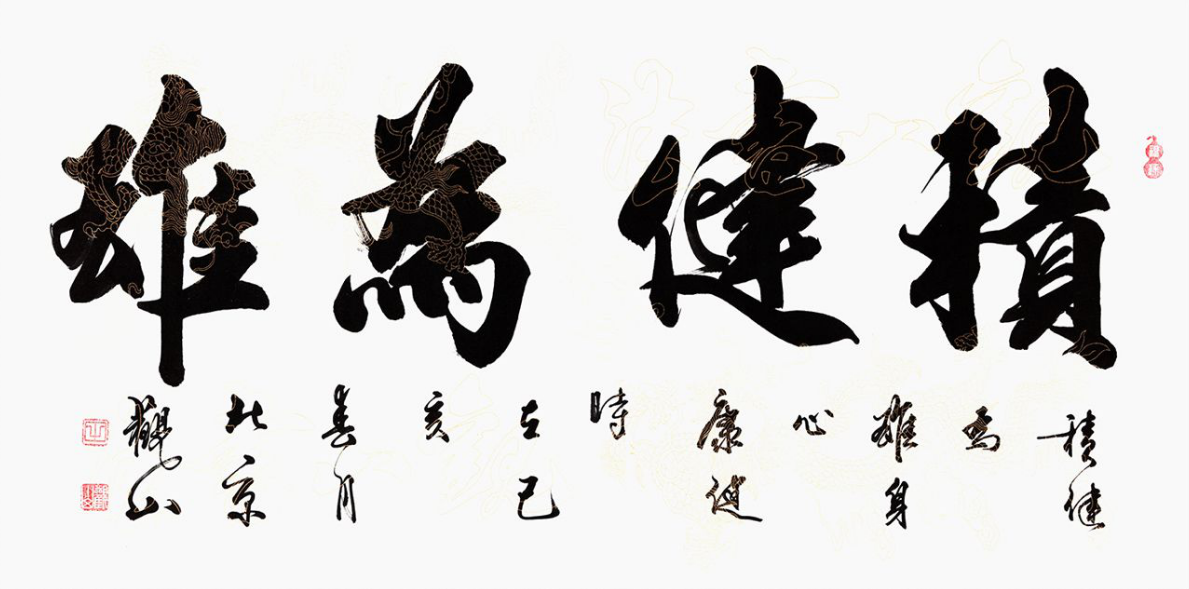 積健為雄
積健
為
雄身
心
康健
時
在己
亥
春月
北京
觀山